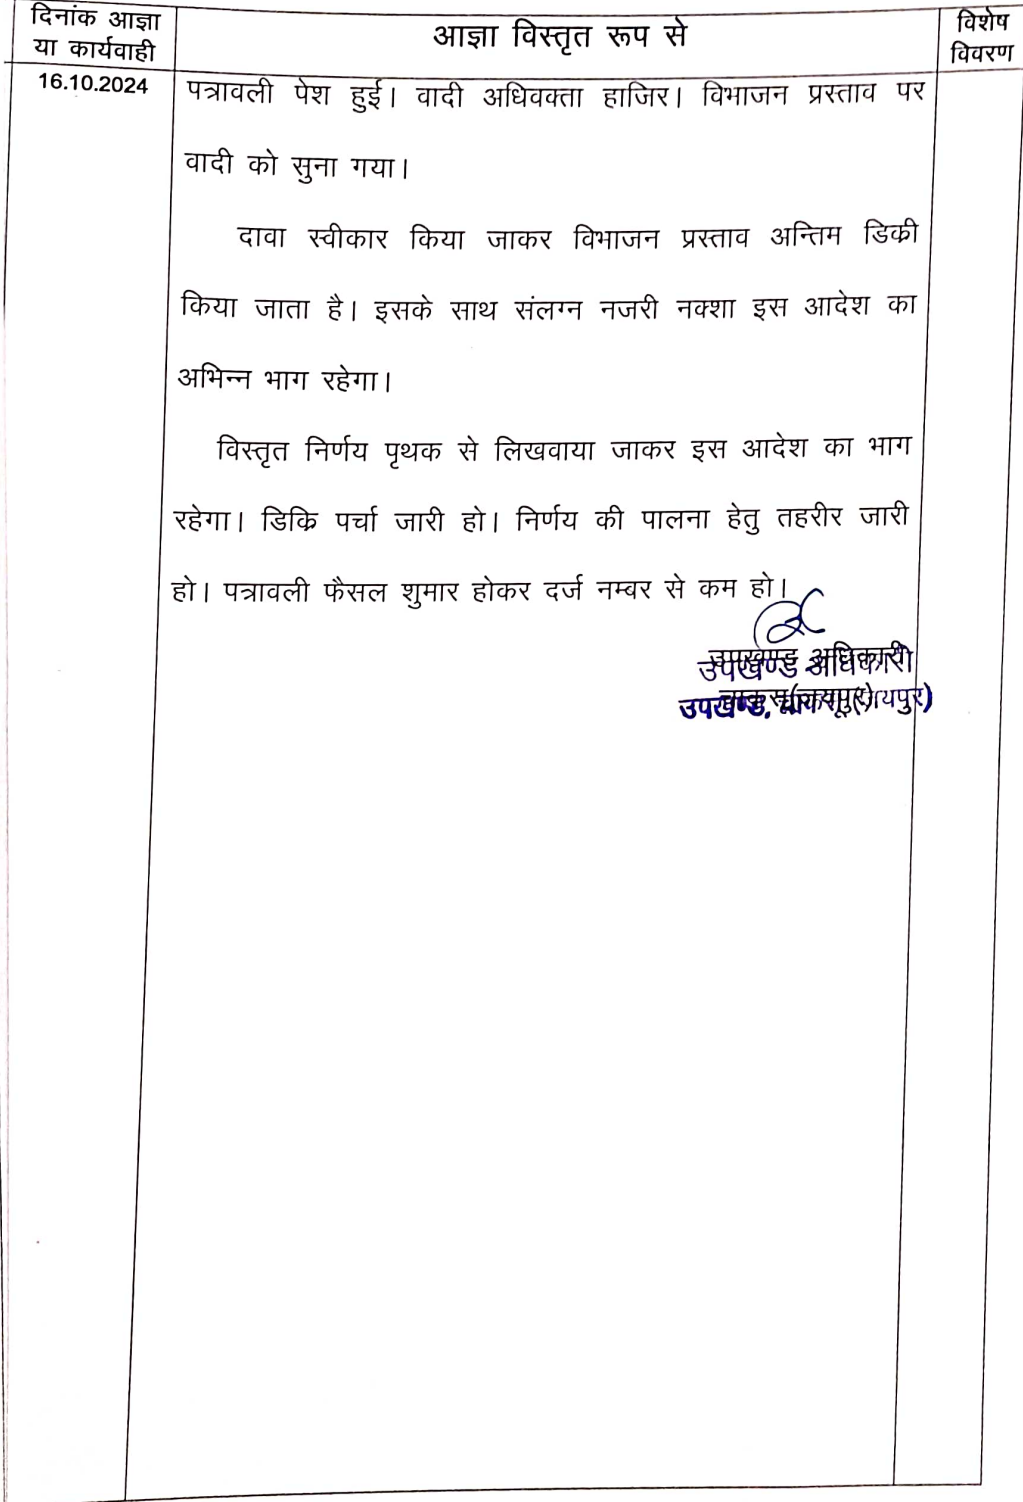 दिनांक आज्ञा
या कार्यवाही
आज्ञा विस्तृत रूप से
विशेष
विवरण
16.10.2024
पत्रावली पेश हुई। वादी अधिवक्ता हाजिर। विभाजन प्रस्ताव पर
वादी को सुना गया।
दावा स्वीकार किया जाकर विभाजन प्रस्ताव अन्तिम डिक्री
किया जाता है। इसके साथ संलग्न नजरी नक्शा इस आदेश का
अभिन्न भाग रहेगा।
विस्तृत निर्णय पृथक से लिखवाया जाकर इस आदेश का भाग
रहेगा। डिक्रि पर्चा जारी हो। निर्णय की पालना हेतु तहरीर जारी
हो। पत्रावली फैसल शुमार होकर दर्ज नम्बर से कम हो।
उपखण्ड अधिकारी
उपखण्ड अधिकारी